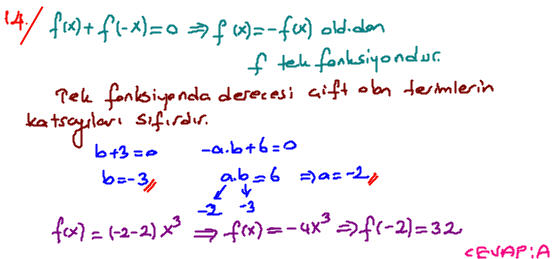 14./ f(x)+f(-x)=0 ⇒ f(x)=-f(x) old.dan
f tek fonksiyondur.
Tek fonksiyonda derecesi çift olan terimlerin
katsayıları sıfırdır.
b+3=0 -a.b+6=0
b=-3 a.b=6 ⇒a=-2
-2 -3
f(x)=(-2-2)x³ ⇒ f(x)=-4x³ ⇒ f(-2)=32
CEVAP:A